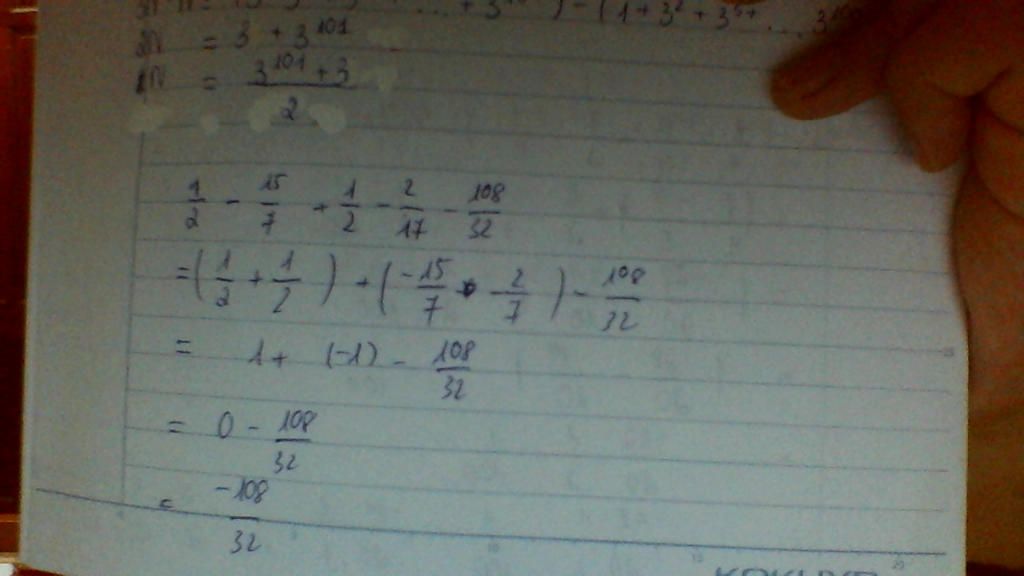 + 3 ) - ( 1 + 3² + 3 + ... 3
= 3 + 3¹⁰¹
= \frac{3¹⁰¹ + 3}{2}
\frac{1}{2} - \frac{15}{7} + \frac{1}{2} - \frac{2}{17} - \frac{108}{32}
= ( \frac{1}{2} + \frac{1}{2} ) + ( \frac{-15}{7} - \frac{2}{7} ) - \frac{108}{32}
= 1 + (-1) - \frac{108}{32}
= 0 - \frac{108}{32}
= \frac{-108}{32}